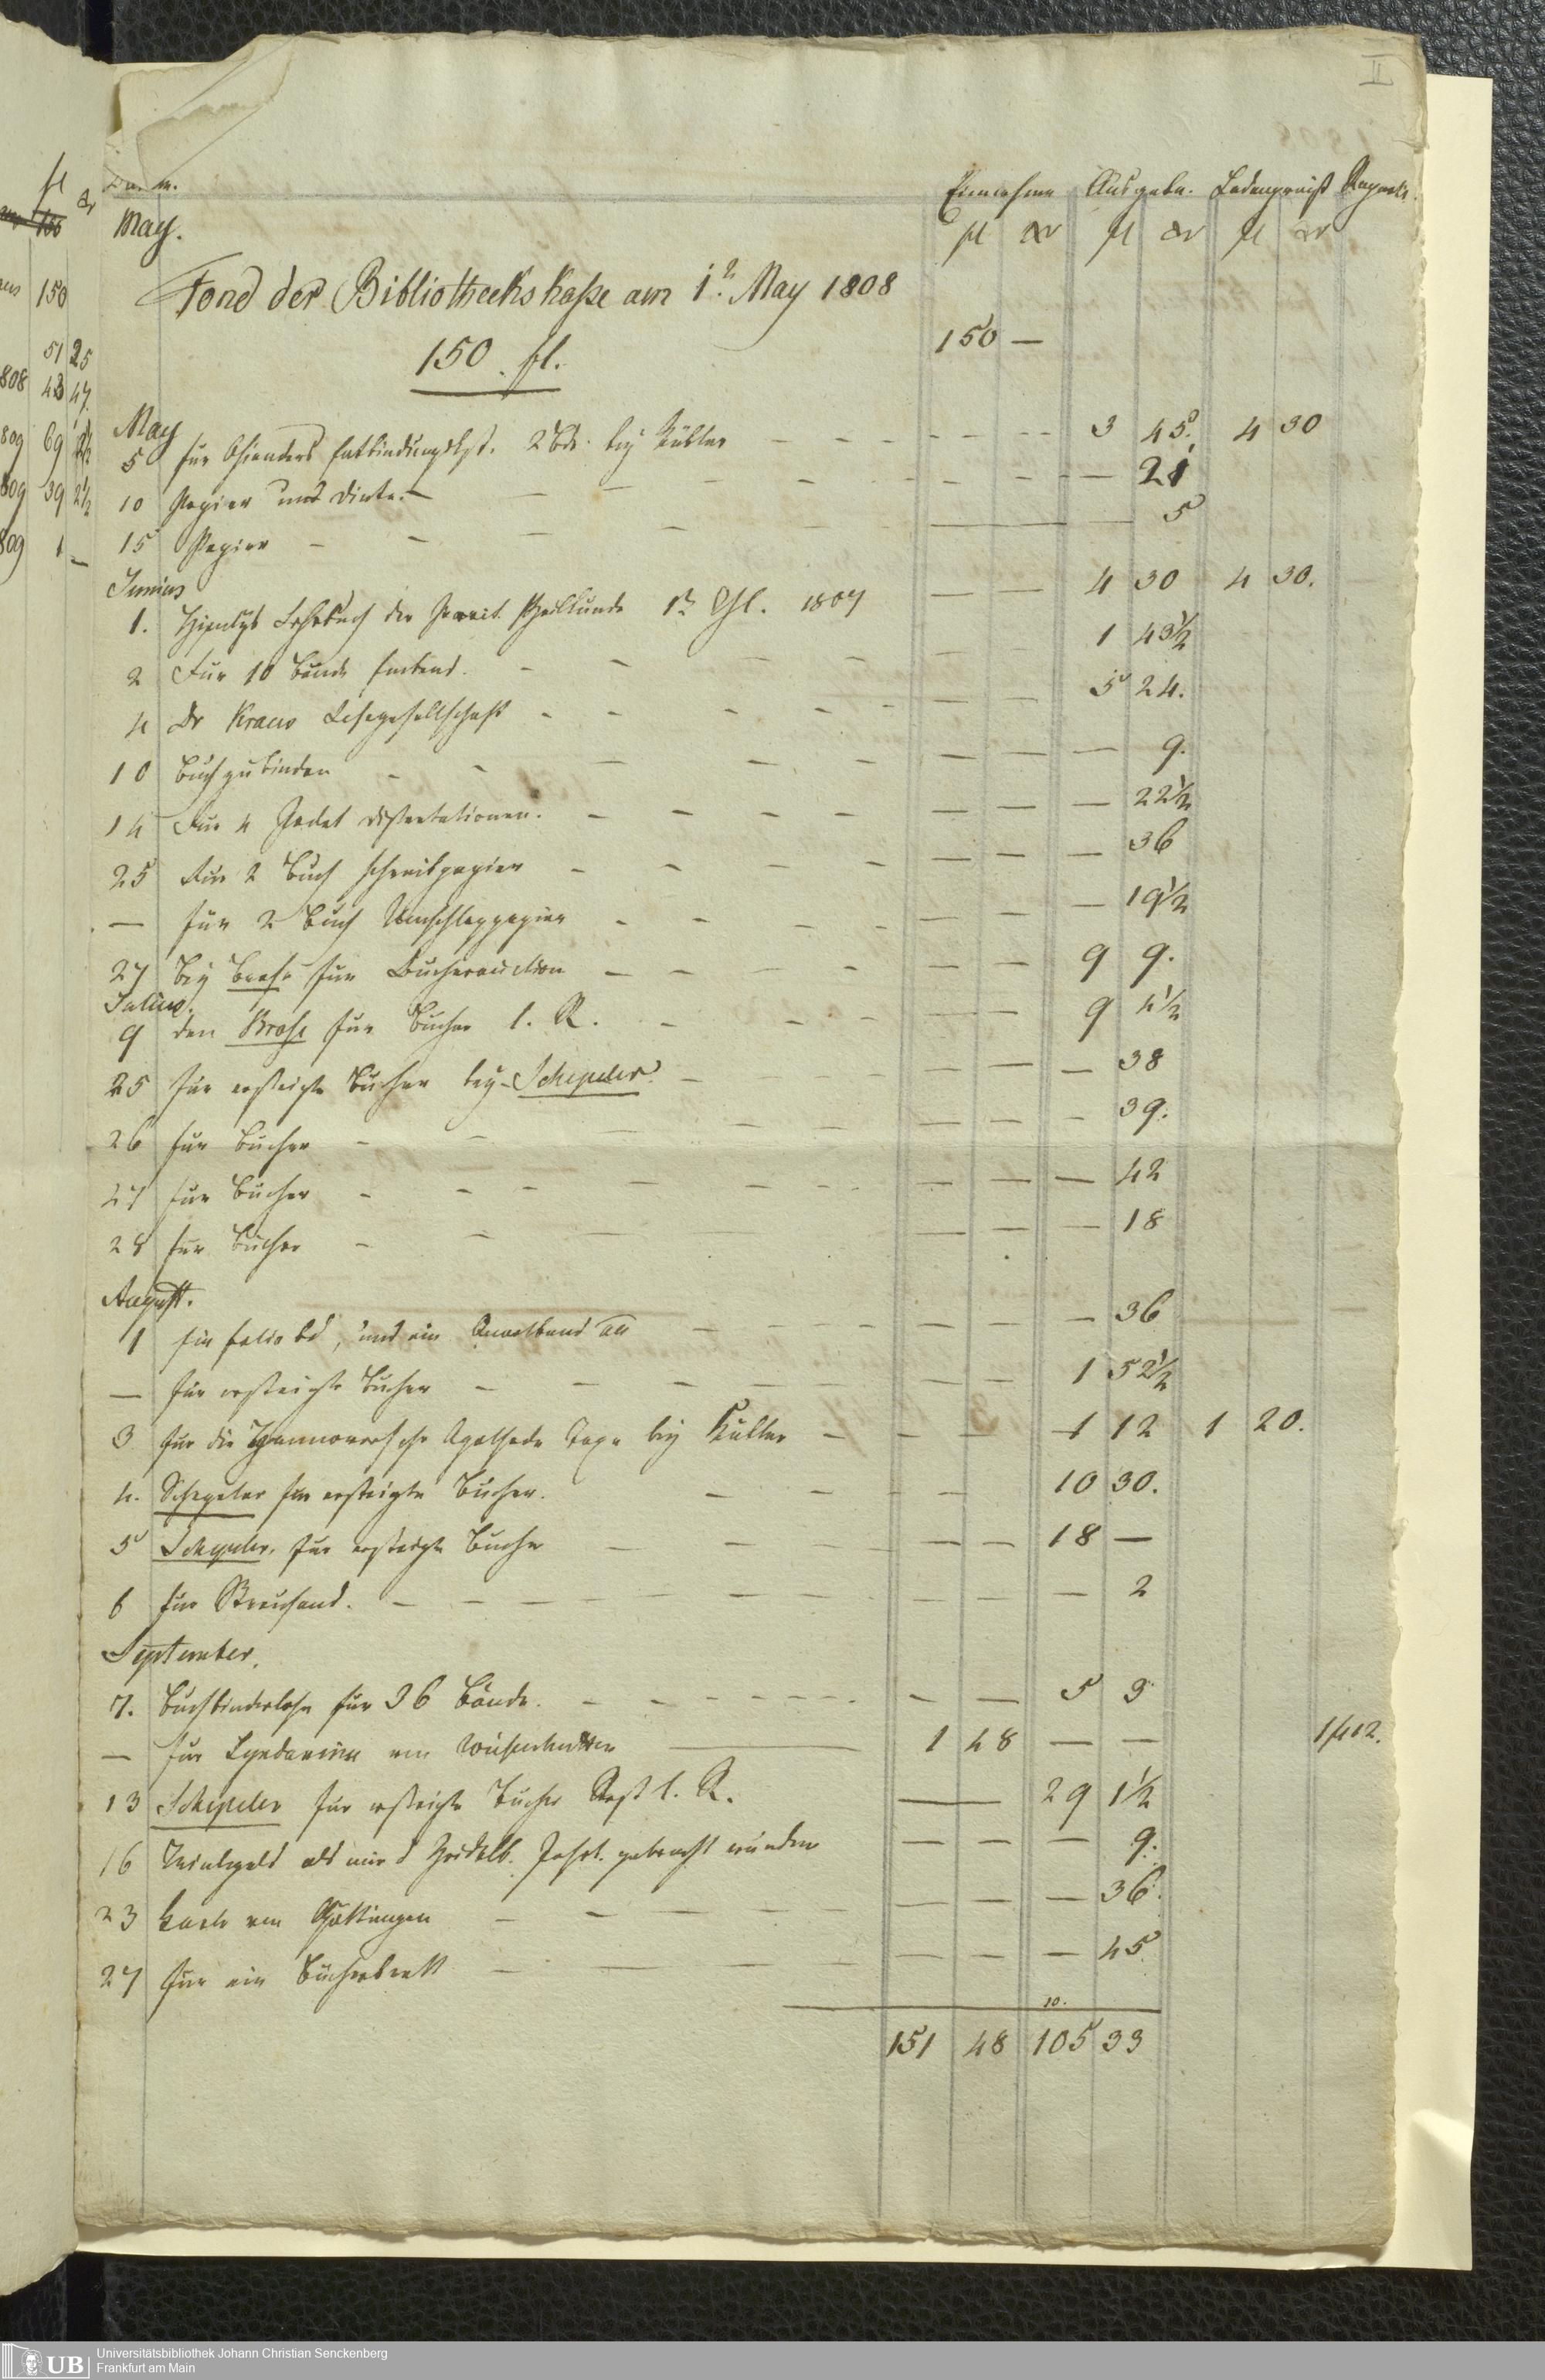 II
fl xr
100
150
51 25
808 43 47.
809 69 2½
809 39 2½
809 1 –
Einnahme Ausgabe. Ladenpreiß
May. fl xr fl xr fl xr
Fond der Bibliothecks kaße am 1t. May 1808
150 . fl. 150 —
May
5 für Osianders Entbindungskst. 2 Bde. bey Kübler 3 45. 4 30
10 Papier und Dinte. — 21
15 Papier — 5
Junius
1. Himlys Lehrbuch der 1r Thl. 1807 4 30 4 30.
2 Für 10 Bände 1 43½
4 Dr Kraus Lesegesellschaft 5 24.
10 Buch zu binden — 9.
14 Für 4 Dissertationen. — 22½
25 Für 2 Buch Schreibpapier — 36
— für 2 Buch Umschlagpapier — 19½
27 Bey für Bucherauction 9 9.
Julius.
9 den für Bücher l. R. 9 4½
25 für ersteigte Bücher bey Schepeler. — 38
26 für Bücher — 39.
27 für Bücher — 42
28 für Bücher — 18
August.
1 ein folio bd, und ein Quartband — 36
— für ersteigte Bücher 1 52½
3 für die Hannoversche Apotheker Taxe bey Kübler 1 12 1 20.
4. Schepeler für ersteigte Bücher. 10 30.
5 Schepeler, für ersteigte Bücher 18 —
6 für Streusand. — 2
September.
7. Buchbinderlohn für 36 Bände. 5 3
— für von 1 48 — — 1f 12.
13 Schepeler für ersteigte Bücher Rest l. R. 29 1½
16 Trinkgeld als mir d Heidelb. Jahrb. gebracht wurden — 9.
23 von Göttingen — 36.
27 für ein Bücherbrett — 45
10.
151 48 105 33
UB
Universitätsbibliothek Johann Christian Senckenberg
Frankfurt am Main